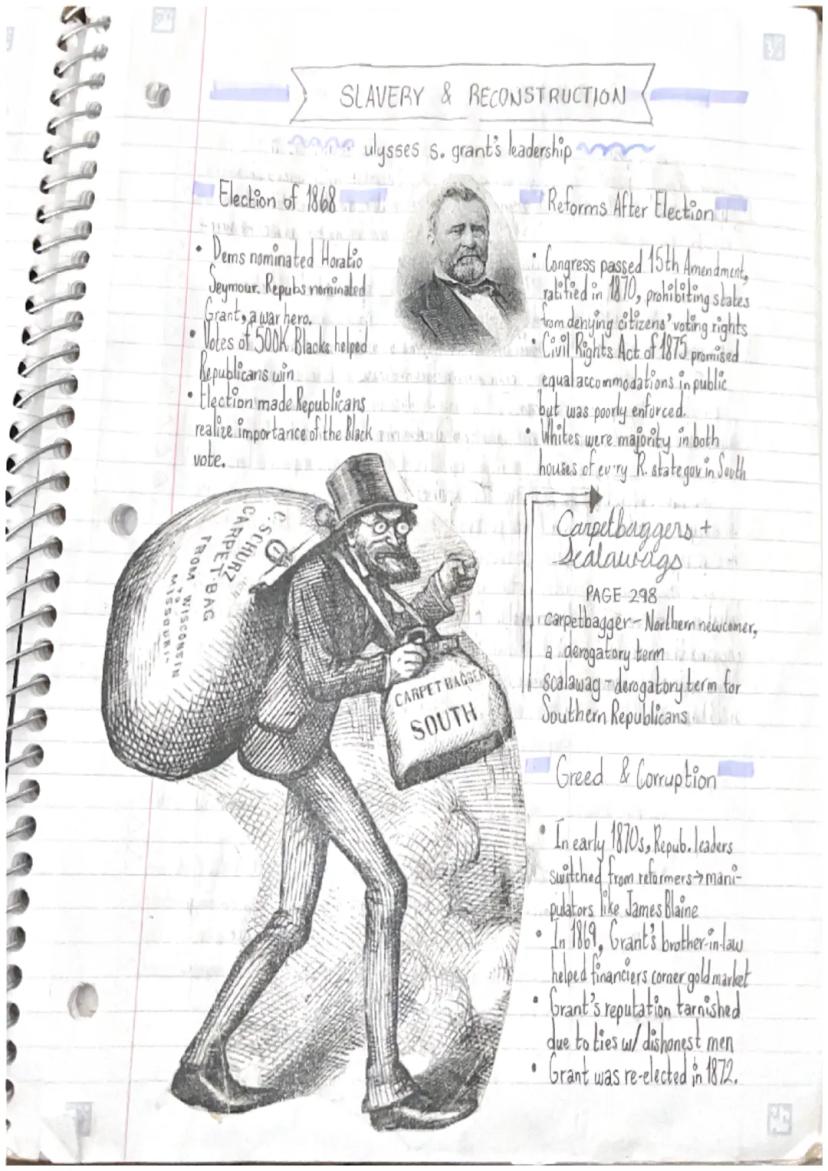 SLAVERY & RECONSTRUCTION
ulysses s. grant's leadership
Election of 1868
• Dems nominated Horatio
Seymour. Repubs nominated
Grant, a war hero.
• Votes of 500K Blacks helped
Republicans win
• Election made Republicans
realize importance of the Black
vote.
Reforms After Election
• Congress passed 15th Amendment,
ratified in 1870, prohibiting states
from denying citizens' voting rights
• Civil Rights Act of 1875 promised
equal accommodations in public
but was poorly enforced.
• Whites were majority in both
houses of every R. state gov in South
C. SCHURZ
CARPET BAG
FROM WISCONSIN
TO
MISSOURI
CARPET BAGGER
SOUTH
Carpetbaggers +
Scalawags
PAGE 298
carpetbagger - Northern newcomer,
a derogatory term
scalawag - derogatory term for
Southern Republicans
Greed & Corruption
• In early 1870s, Repub. leaders
switched from reformers→mani-
pulators like James Blaine
• In 1869, Grant's brother-in-law
helped financiers corner gold market
• Grant's reputation tarnished
due to ties w/ dishonest men
• Grant was re-elected in 1872.